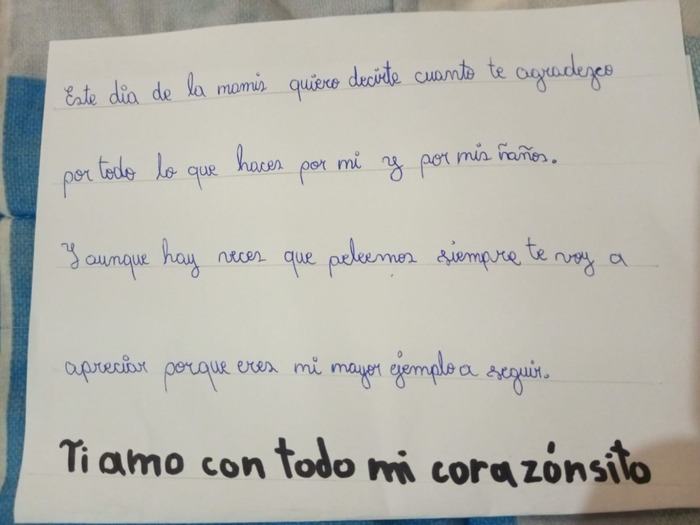 Este dia de la mamis quiero decirte cuanto te agradezco
por todo lo que haces por mi y por mis ñaños.
Y aunque hay veces que peleemos siempre te voy a
apreciar porque eres mi mayor ejemplo a seguir.
Ti amo con todo mi corazónsito